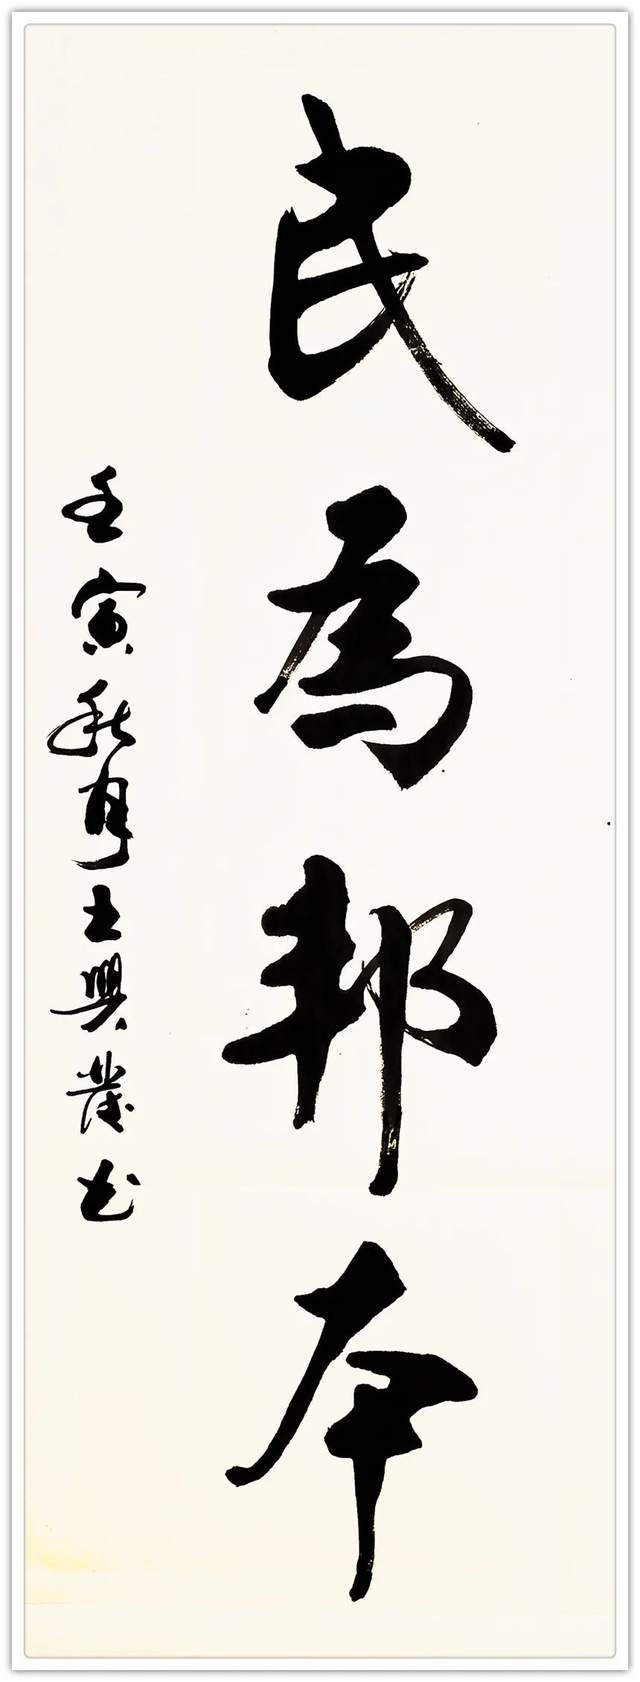 民為邦本
壬寅秋月王興業书